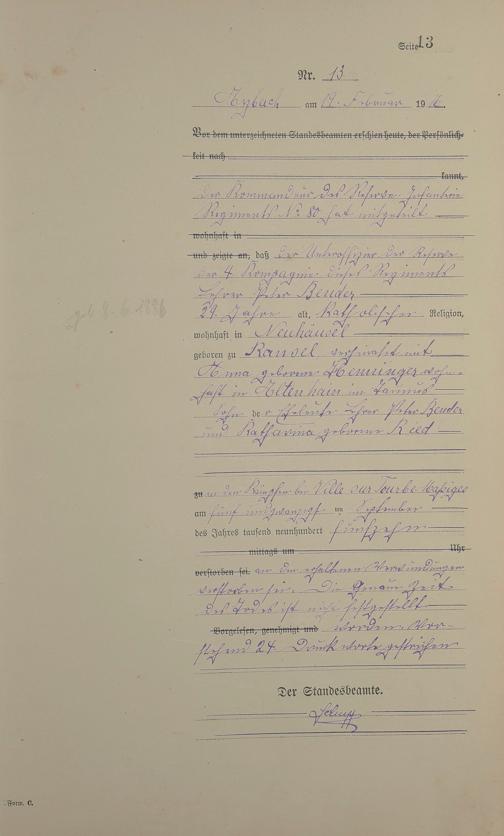 Seite 13
Nr. 13
am 17. Februar 1916.
Vor dem unterzeichneten Standesbeamten erschien heute, der Persönlich-
keit nach
kannt,
der Kommandeur des Reserve Infanterie
Regiments No 80 hat mitgeteilt
wohnhaft in
und zeigte an, daß der Unteroffizier der Reserve
der 4 Kompagnie dieses Regiments
Lehrer Peter Bender
29 Jahre alt, katholischer Religion,
wohnhaft in Neuhäusel
geboren zu Ransel verheiratet mit
Anna geborene Henninger wohn-
haft in Altenhain im Taunus
Sohn der Eheleute Lehrer Peter Bender
und Katharina geborene Ried
geb 8.6.1886
zu in den Kämpfen bei Ville sur Tourbe Massiges
am fünf und zwanzigsten September
des Jahres tausend neunhundert fünfzehn
mittags um Uhr
verstorben sei. an den erhaltenen Verwundungen
verstorben sei. Die genaue Zeit
des Todes ist nicht festgestellt
Vorgelesen, genehmigt und worden. Vor-
stehend 24 Druckworte gestrichen
Der Standesbeamte.
Form. C.